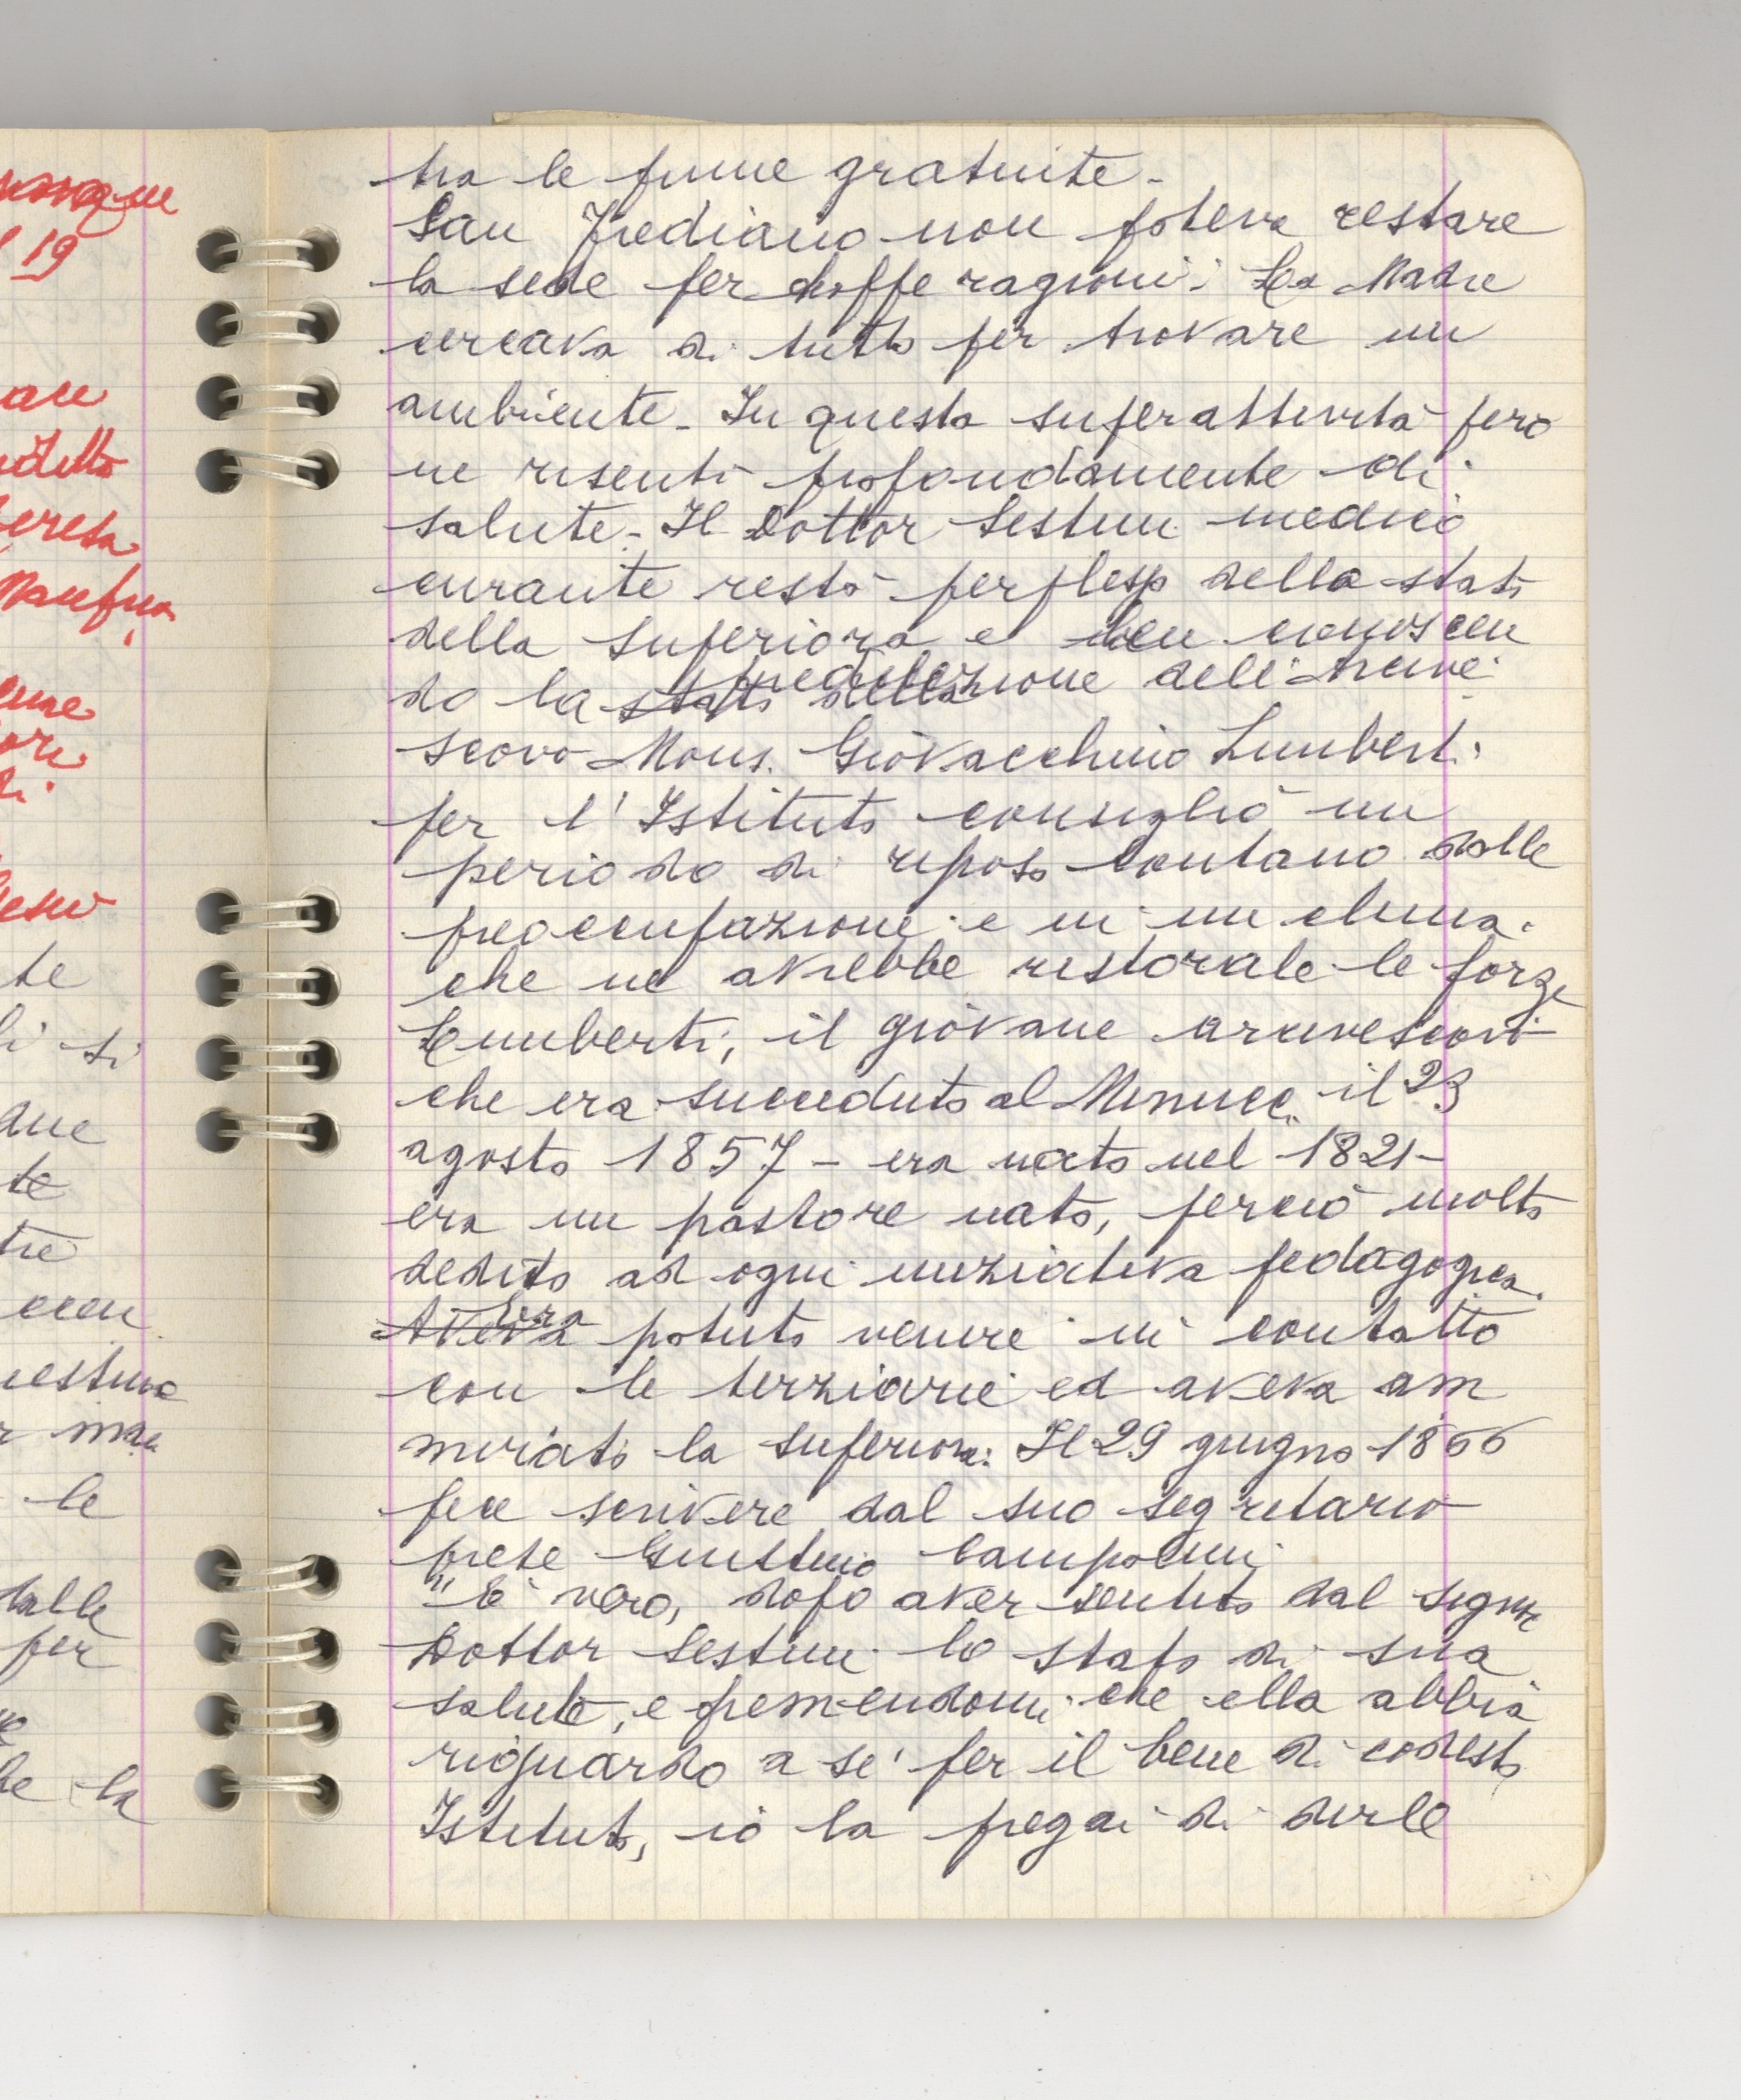 tra le prime gratuite -
San Frediano non poteva restare
la sede per troppe ragioni. La Madre
cercava di tutto per trovare un
ambiente - In questa superattività però
ne risentì profondamente di
salute - Il Dottor Sestini medico
curante restò perplesso dello stato
della Superiora e ben conoscen
do la stato della predilezione dell'Arcive
scovo Mons. Giovacchino Limberti
per l'Istituto consigliò un
periodo di riposo lontano dalle
preoccupazioni e in un clima
che ne avrebbe ristorate le forze
Limberti, il giovane arcivescovo
che era succeduto al Minucci il 23
agosto 1857 - era nato nel 1821 -
era un pastore nato, perciò molto
dedito ad ogni iniziativa pedagogica.
Aveva Era potuto venire in contatto
con le terziarie ed aveva am
mirato la superiora. Il 29 giugno 1866
fece scrivere dal suo segretario
prete Giustino Campolmi
"È vero, dopo aver sentito dal signor
Dottor Sestini lo stato di sua
salute, e premendomi che ella abbia
riguardo a sé per il bene di codesto
Istituto, io la pregai di dirle
19
te
si
te
tre
le
dalle
per
la